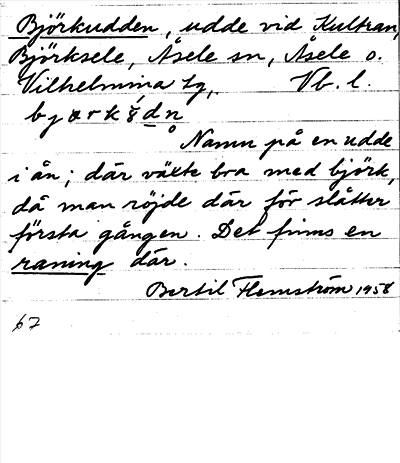 Björkudden, udde vid Kultran,
Björksele, Åsele sn, Åsele o.
Vilhelmina tg, Vb. l.
Namn på en udde
i ån; där växte bra med björk,
då man röjde där för slåtter
första gången. Det finns en
raning där.
Bertil Flemström 1958
67